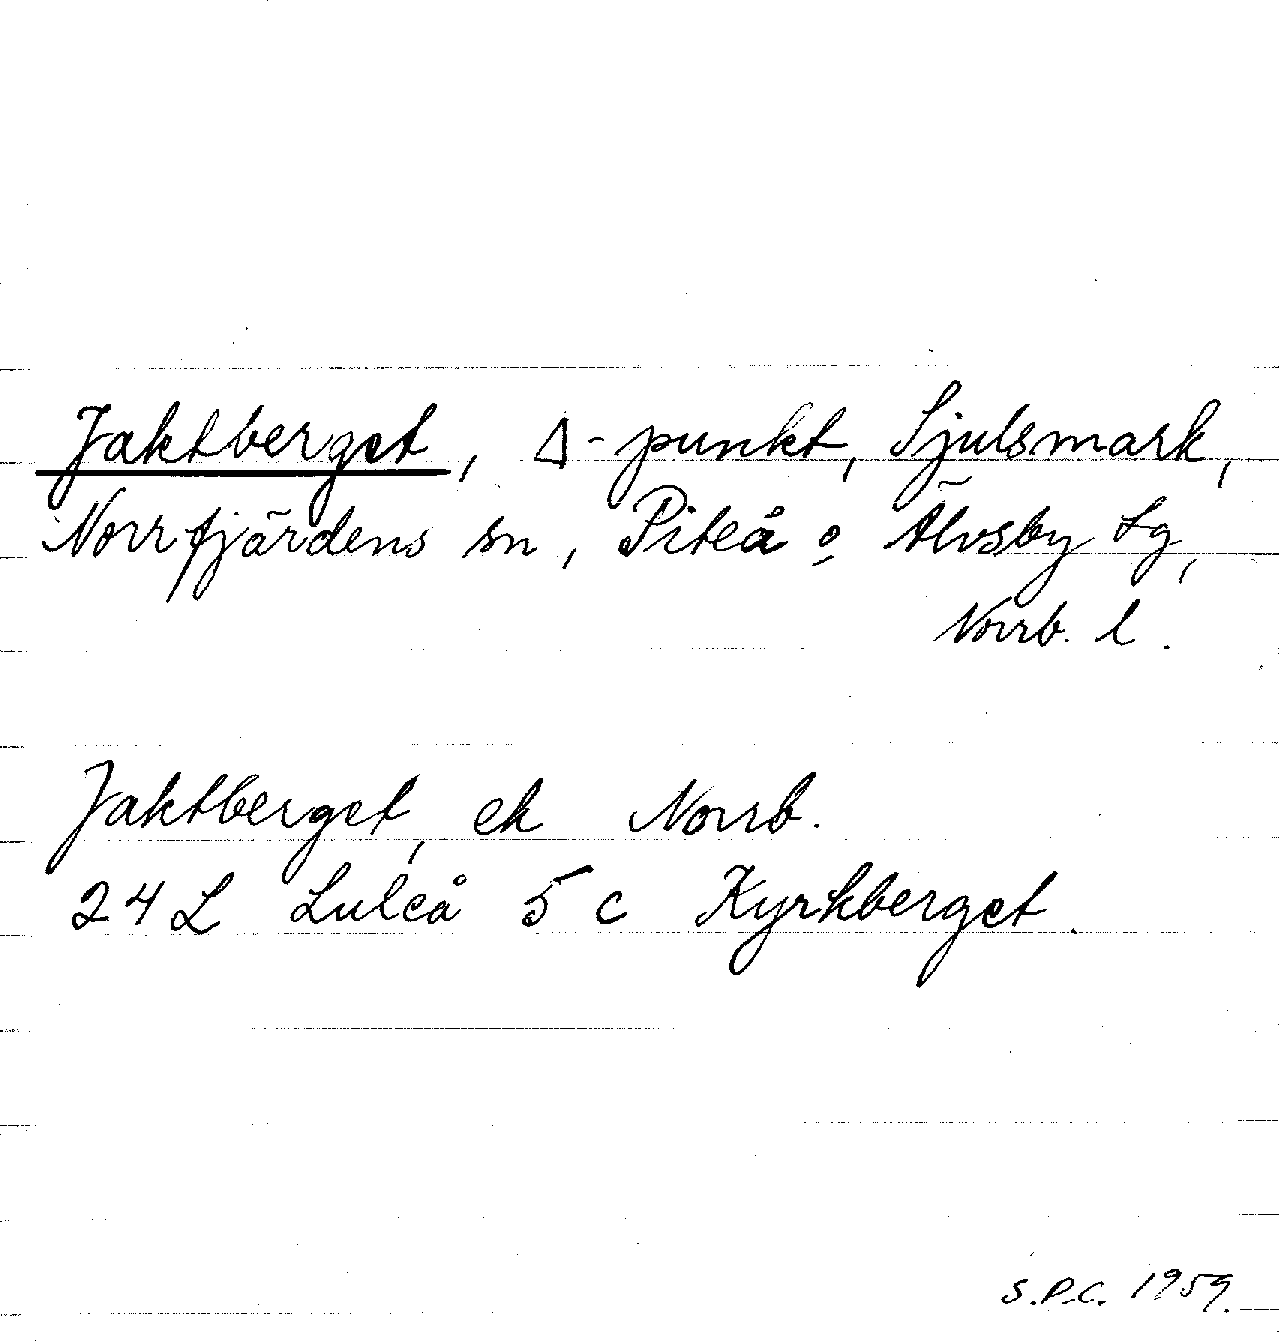 Jaktberget, Δ-punkt, Sjulsmark,
Norrfjärdens sn, Piteå o Älvsby tg,
Norrb. l.
Jaktberget, ek Norrb.
24 L Luleå 5 c Kyrkberget.
S.P.C. 1959.